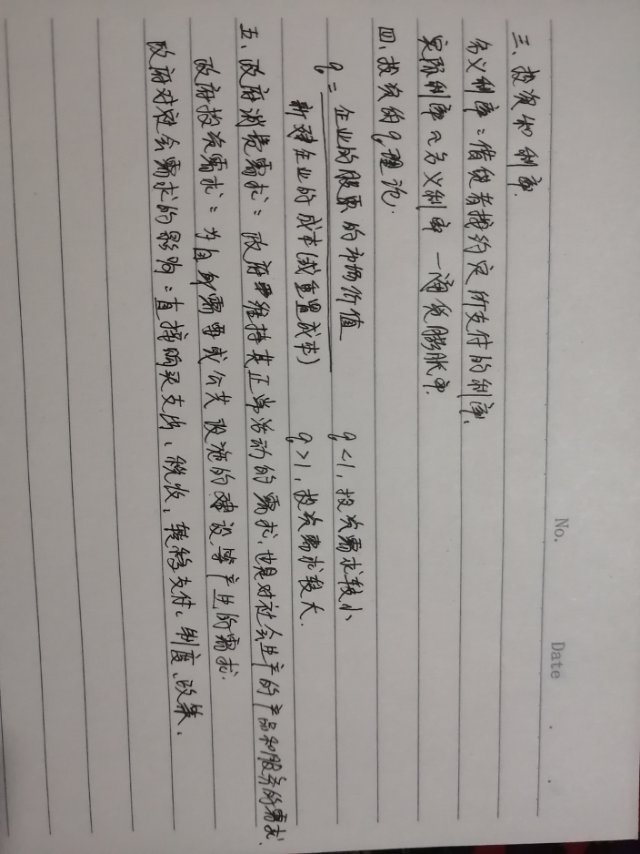 No.
Date
三、投资和利率.
名义利率：借贷者按约定所支付的利率.
实际利率≈名义利率－通货膨胀率.
四、投资的q理论.
q = 企业的股票的市场价值 q<1,投资需求较小
新建企业的成本(或重置成本) q>1,投资需求较大.
五、政府消费需求：政府维持其正常活动的需求,也是对社会生产的产品和服务的需求.
政府投资需求：为自身需要或公共设施的建设等产生的需求.
政府对社会需求的影响：直接购买支出、税收、转移支付、制度、政策.